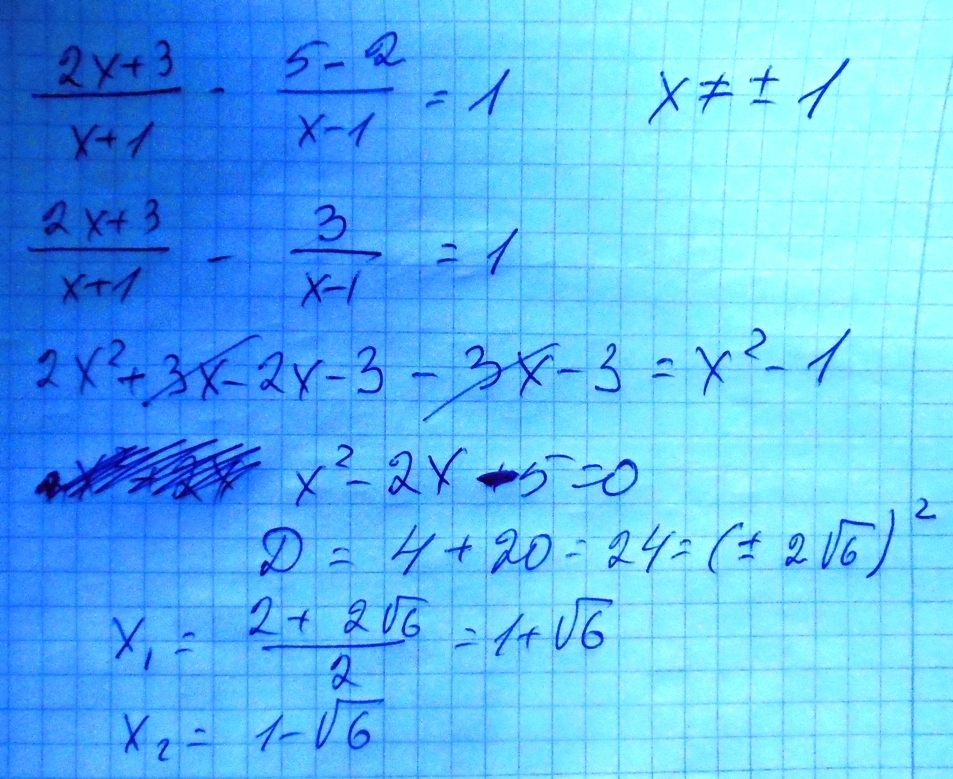 (2x+3)/(x+1) - (5-2)/(x-1) = 1 x ≠ ± 1
(2x+3)/(x+1) - 3/(x-1) = 1
2x² + 3x - 2x - 3 - 3x - 3 = x² - 1
x² - 2x - 5 = 0
D = 4 + 20 = 24 = (± 2√6)²
x₁ = (2 + 2√6)/2 = 1 + √6
x₂ = 1 - √6